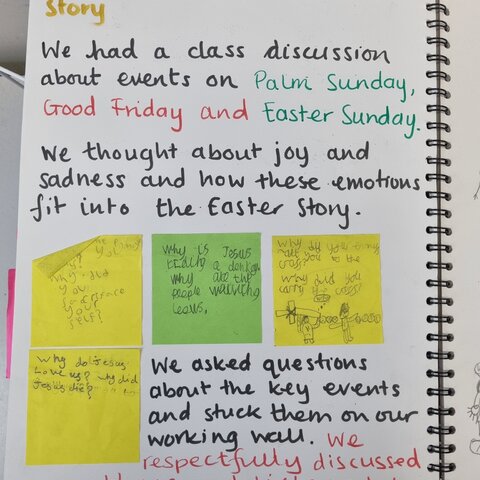 Story
We had a class discussion
about events on Palm Sunday,
Good Friday and Easter Sunday.
We thought about joy and
sadness and how these emotions
fit into the Easter Story.
why did
you
your
self?
Why is Jesus
a donkey
why are the
people
Jesus.
you to the
cross?
Why did you
carry
Why do Jesus
Love us? why did
Jesus die?
We asked questions
about the key events
and stuck them on our
working wall. We
respectfully discussed